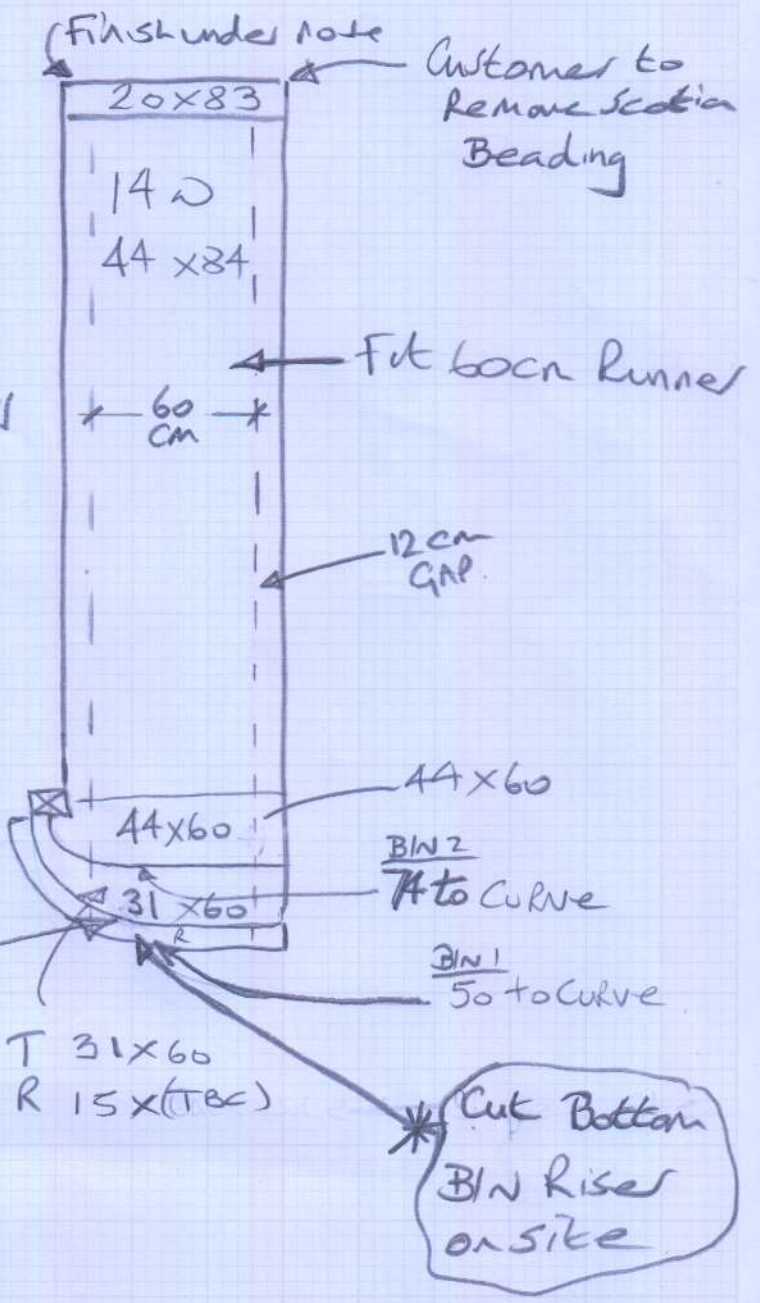 Finish under nose
Customer to
Remove Scotia
Beading
20x83
14
44 x84
Fit 60cm Runner
60
cm
12 cm
GAP.
44x60
44x60
BIN 2
74 to CURVE
31 x60
R
BIN 1
50 to CURVE
T 31x60
R 15x(TBC)
Cut Bottom
BIN Riser
on site